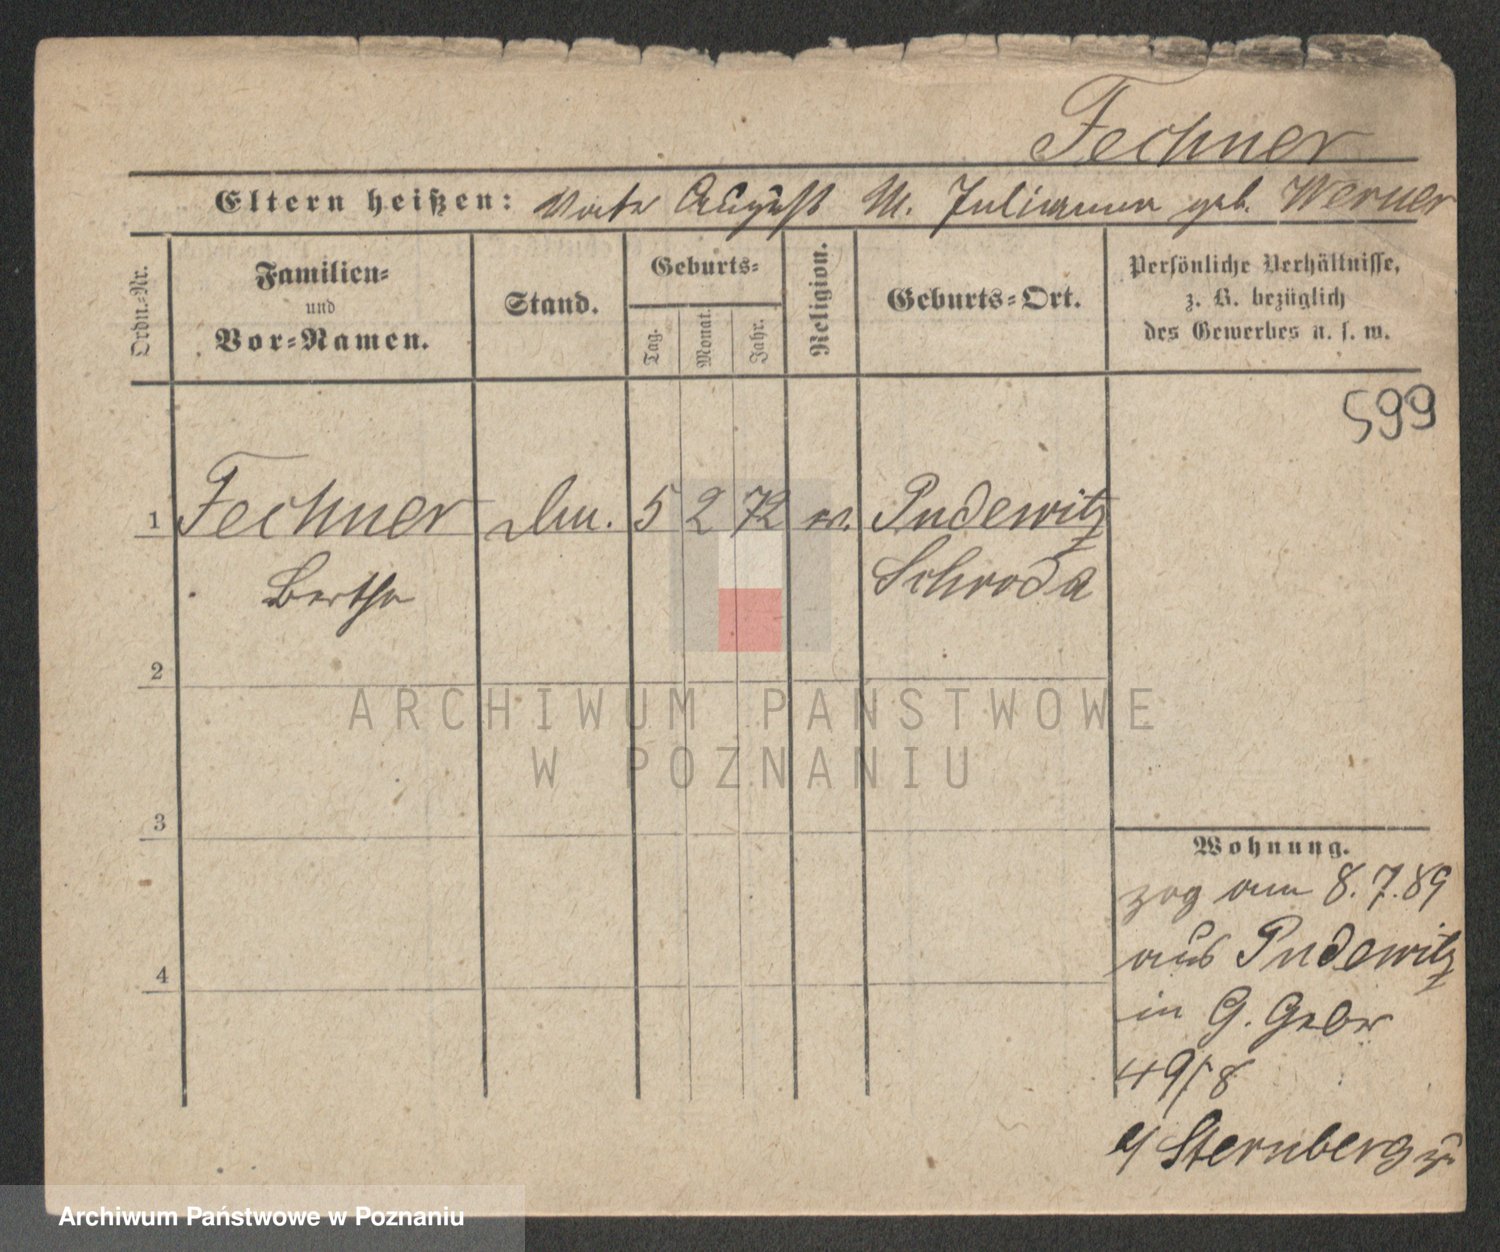 Fechner
Eltern heißen: Vater August M. Julianna geb. Werner
Ordn.=Nr.
Familien=
und
Vor=Namen.
Stand.
Geburts=
Tag.
Monat.
Jahr.
Religion.
Geburts=Ort.
Persönliche Verhältnisse,
z. B. bezüglich
des Gewerbes u. s. w.
599
1 Fechner 5 2 72 ev. Pudewitz
Bertha Schroda
2
ARCHIWUM PAŃSTWOWE
W POZNANIU
3
Wohnung.
zog am 8.7.89
aus Pudewitz
in G. Gerber
49/8
Sternberg
4
Archiwum Państwowe w Poznaniu